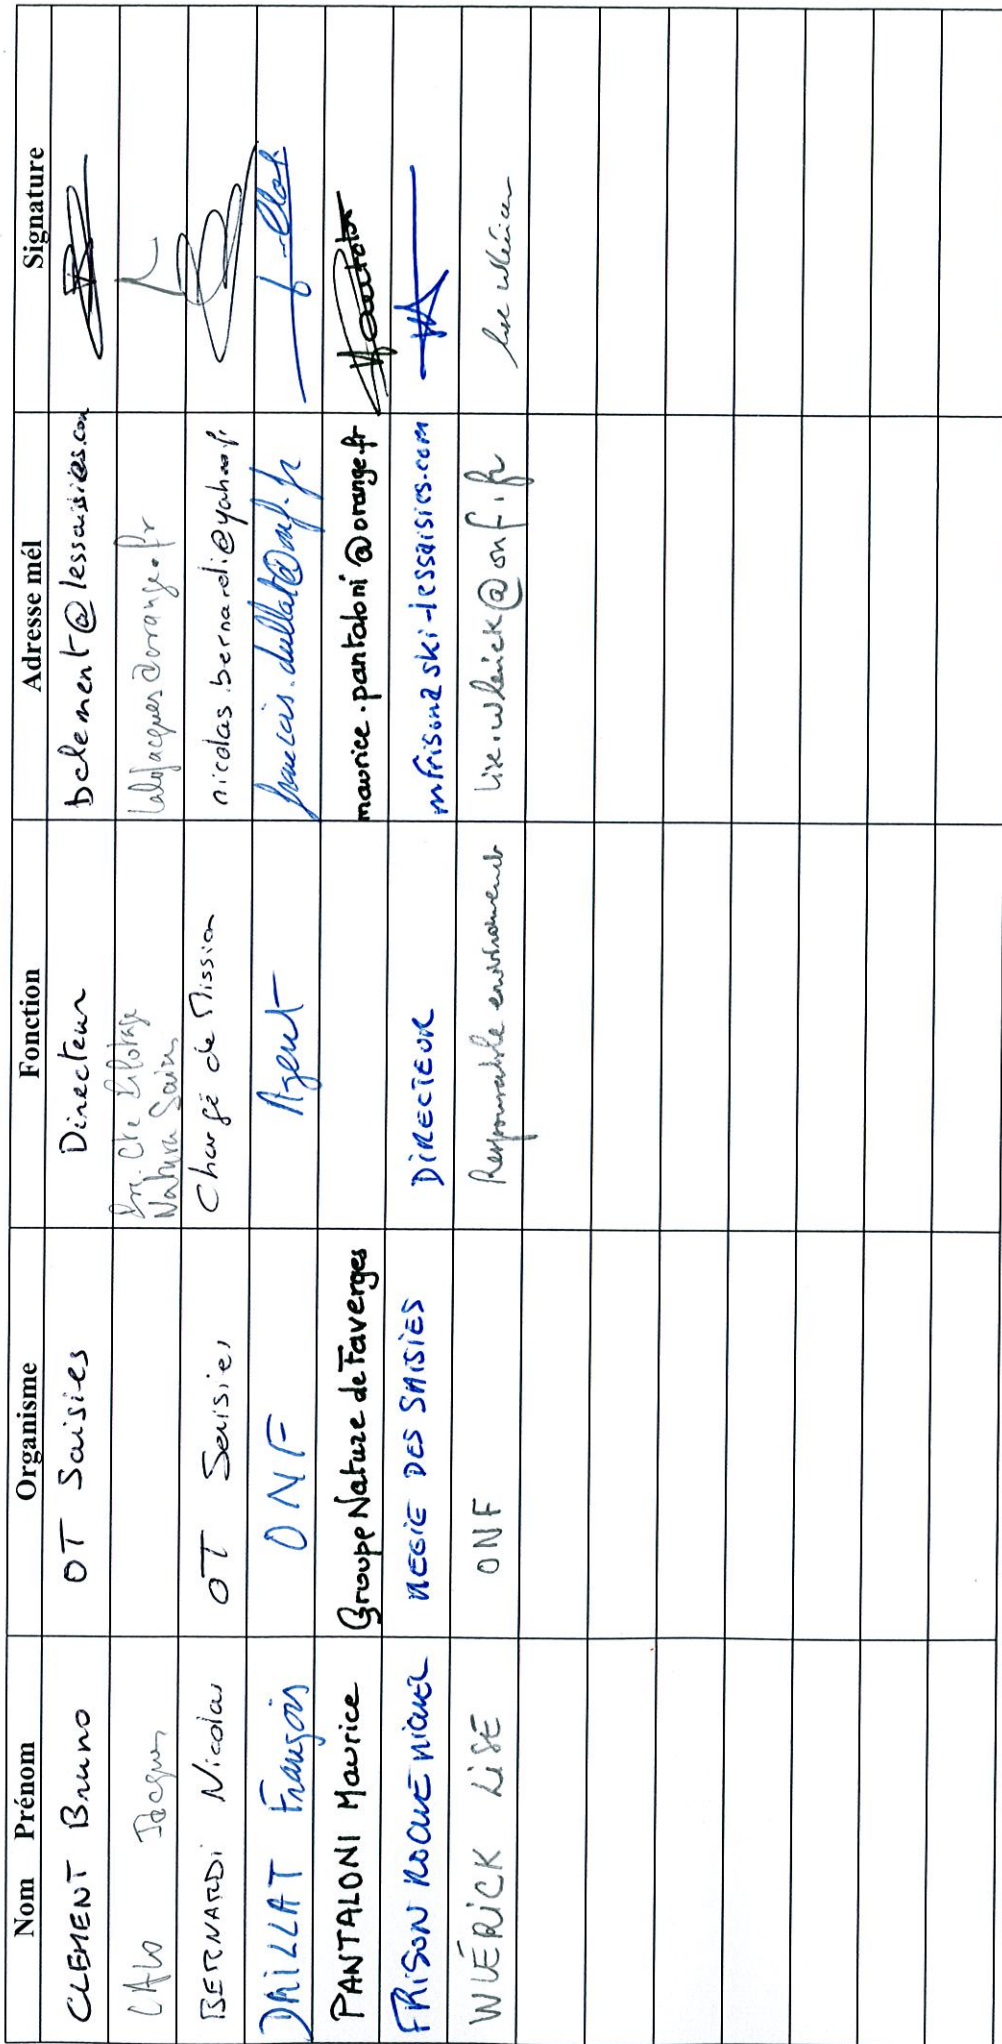 Nom Prénom Organisme Fonction Adresse mél Signature
CLEMENT Bruno OT Saisies Directeur bclement@lessaisies.com
Jacques Pdt. Cte Pilotage
Natura
BERNARDI Nicolas OT Saisies Chargé de Mission nicolas.bernardi@yahoo.fr
DAILLAT François ONF Agent
PANTALONI Maurice Groupe Nature de Faverges maurice.pantaloni@orange.fr
FRISON ROCHE MICHEL REGIE DES SAISIES DIRECTEUR mfrison@ski-lessaisies.com
WIÉRICK LISE ONF Responsable environnement lise.wierick@onf.fr